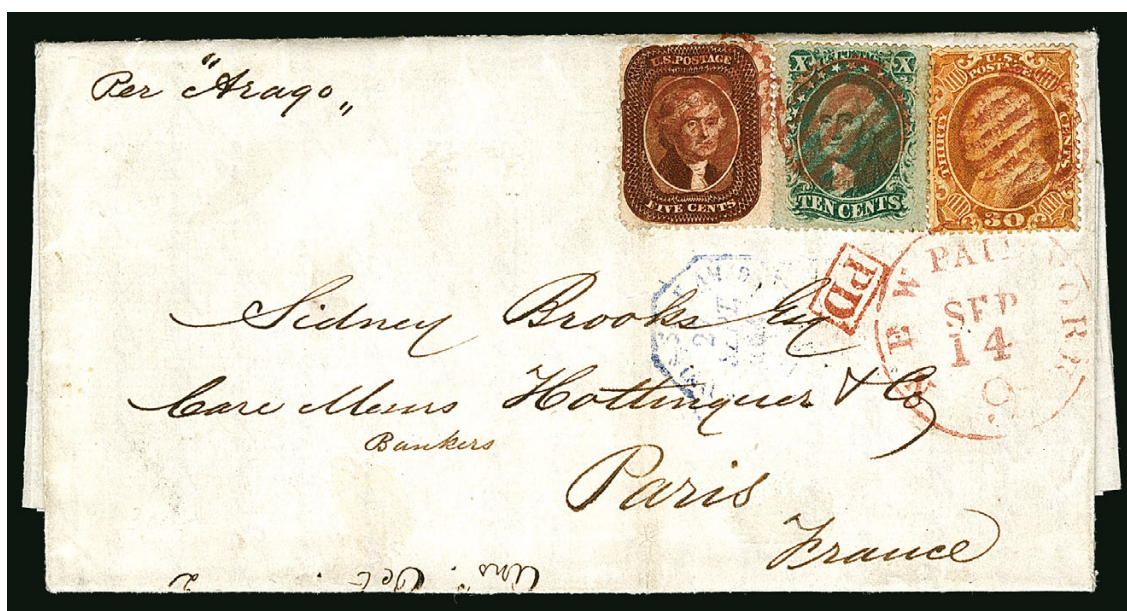 Per "Arago"
U.S. POSTAGE
FIVE CENTS
X U.S. POSTAGE X
TEN CENTS
U.S.
POSTAGE
THIRTY CENTS
30
PD
NEW YORK
PAID
SEP
14
Sidney Brooks Esq
Care Messrs Hottinguer & Co
Bankers
Paris
France
Ans. Oct.